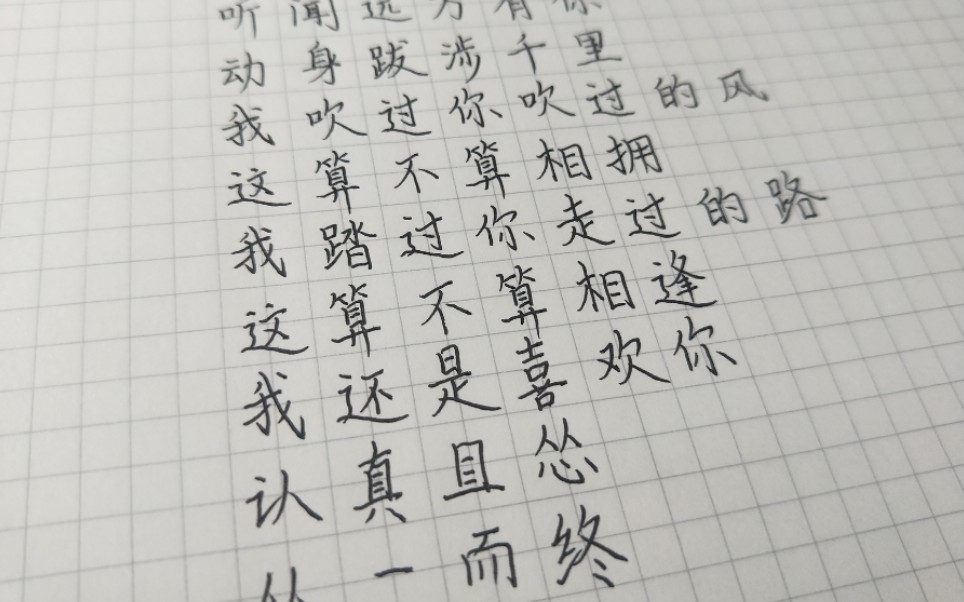 听闻远方有你
动身跋涉千里
我吹过你吹过的风
这算不算相拥
我踏过你走过的路
这算不算相逢
我还是喜欢你
认真且怂
从一而终